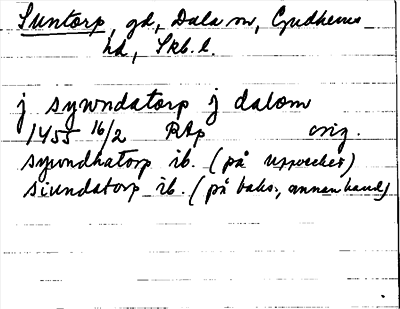 Suntorp, gd, Dala sn, Gudhems
hd, Skb. l.
j sywndatorp j dalom
1455 16/2 RAp orig.
sywndhatorp ib. (på uppvecket)
siundatorp ib. (på baks., annan hand)